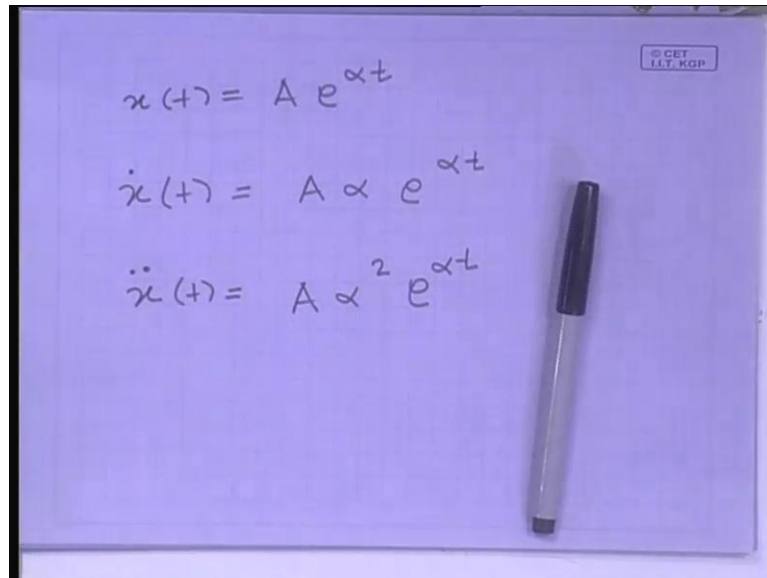 © CET
I.I.T. KGP
x(t) = A e^{αt}
ẋ(t) = A α e^{αt}
ẍ(t) = A α^2 e^{αt}